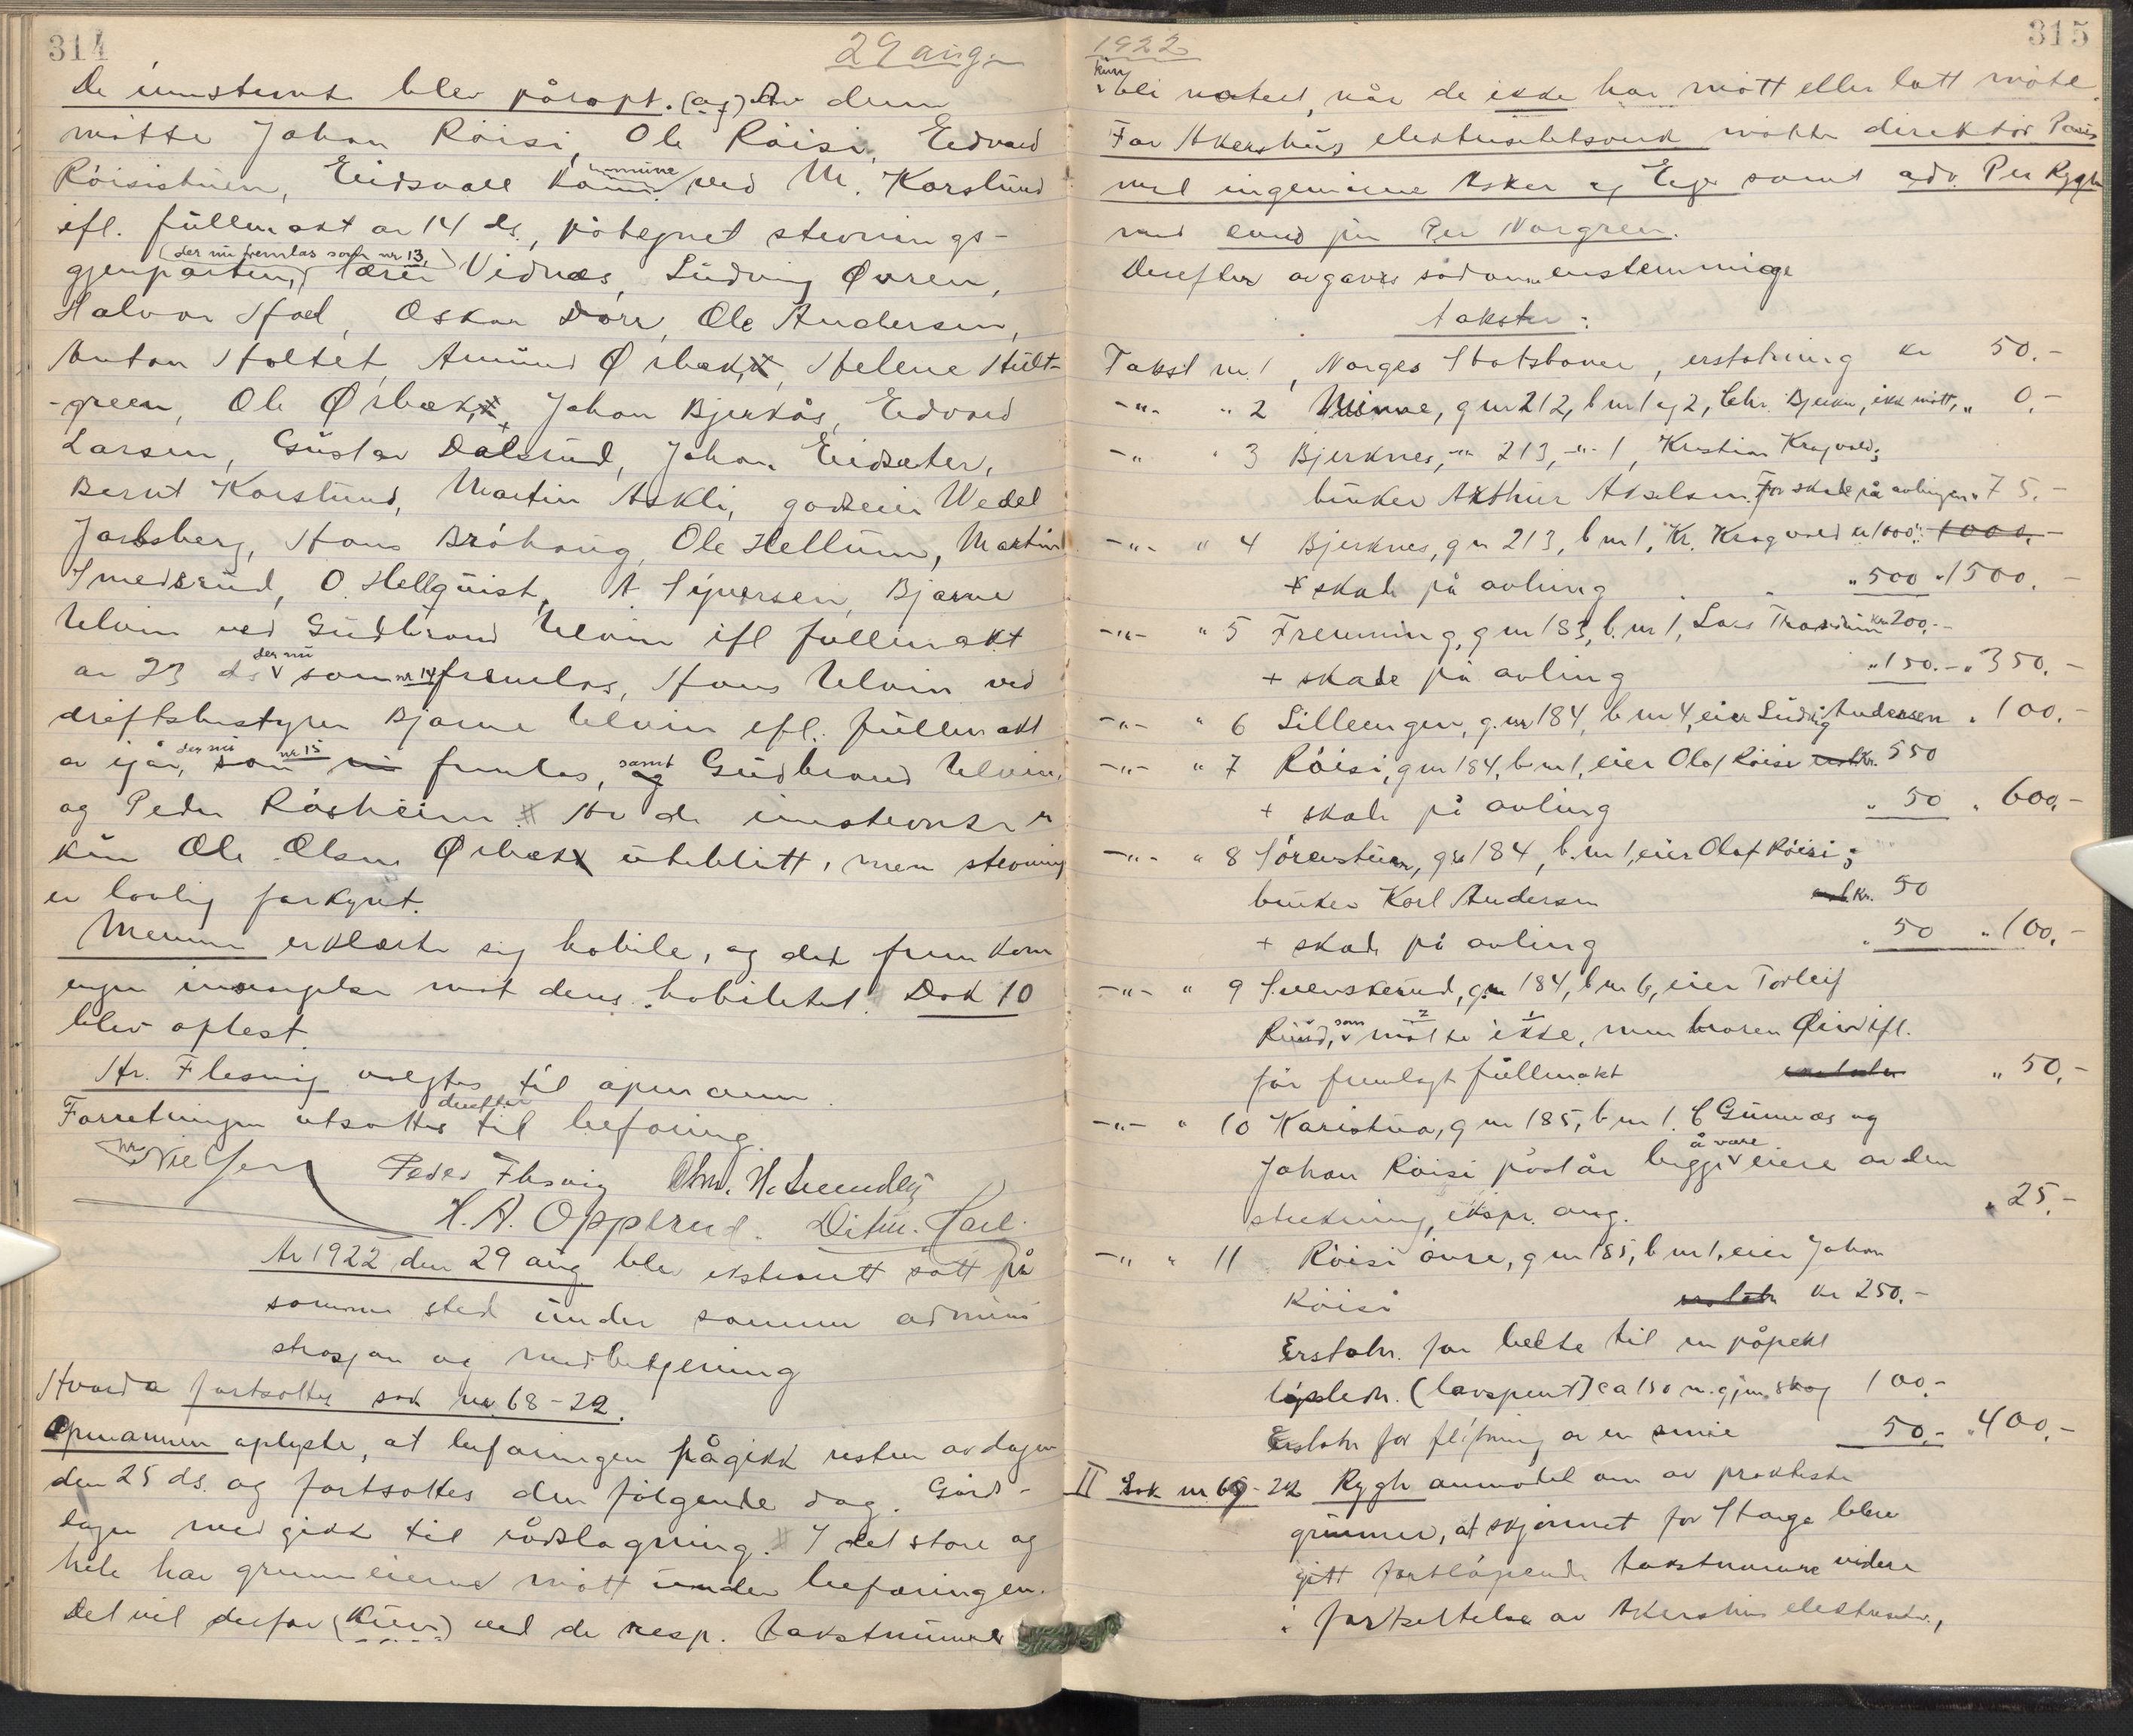 314
29 aug.
De innstevnte blev påropt. (og) Av dem
møtte Johan Röisi, Ole Röisi, Edvard
Röisistuen, Eidsvoll kommune ved M. Korslund
ifl. fullmakt av 14 ds., påtegnet stevnings-
gjenparten, (der nu fremlas som nr 13,) lærer Vidnes, Ludvig Øvren,
Halvor Hoel, Oskar Dorr, Ole Andersen,
Anton Holtet, Amund Ørbæk, Helene Hult-
-green, Ole Ørbæk, Johan Bjerkås, Edvard
Larsen, Gustav Dalsrud, Johan Eidsæter,
Bernt Korslund, Martin Askli, godseier Wedel
Jarlsberg, Hans Bröhaug, Ole Hellum, Martin
Smedsrud, O. Hellquist, A. Syversen, Bjarne
Ulvin ved Gudbrand Ulvin ifl fullmakt
av 23 ds der nu som nr 14 fremlas, Hans Ulvin ved
driftsbestyrer Bjarne Ulvin ifl. fullmakt
av igår, der nu som nr 15 nu fremlas, samt og Gudbrand Ulvin,
og Peder Råsheim. Av de innstevnte er
kun Ole Olsen Ørbæk uteblitt, men stevning
er lovlig forkynt.
Mennene erklærte sig habile, og det fremkom
ingen innsigelse mot deres habilitet. Dok 10
blev oplest.
Hr. Flesvig valgtes til opmann.
Forretningen utsattes derefter til befaring.
Nielsen Peder Flesvig Chr. H. Lundby
H. A. Opperud. Ditm. Hael.
År 1922 den 29 aug ble ekstrarett satt på
samme sted under samme admini
strasjon og medbetjening
Hvorda fortsattes sak nr. 68-22.
Opmannen oplyste, at befaringen pågikk resten av dagen
den 25 ds. og fortsattes den følgende dag. Gårs-
dagen medgikk til rådslagning. I det store og
hele har grunneierne møtt under befaringen.
Det vil derfor (kun) ved de resp. takstnummer
315
1922
kun bli notert, når de ikke har møtt eller latt møte.
For Akershus elektrisitetsverk møtte direktør
med ingeniørene Asker og samt adv. Per Rygh
med cand jur Per Norgren.
Derefter avgaves sådanne enstemmige
takster:
Takst nr. 1, Norges Statsbaner, erstatning kr 50.-
-"- " 2 Minne, g nr 212, b nr 1 og 2, Chr. Bjerke, ikke møtt, " 0,-
-"- " 3 Bjerknes, -"- 213, -"- 1, Kristian Kragvold;
bruker Arthur Akselsen. For skade på avlingen " 75.-
-"- " 4 Bjerknes, g nr 213, b nr 1, Kr. Kragvold kr 1000.- 1000.-
+ skade på avling " 500 " 1500.-
-"- " 5 Fremming, g nr 183, b. nr 1, Lars kr 200.-
+ skade på avling " 150.- " 350.-
-"- " 6 Lilleengen, g. nr 184, b nr 4, eier Ludvig Andersen " 100.-
-"- " 7 Röisi, g nr 184, b nr 1, eier Olaf Röisi kr. 550
+ skade på avling " 50 " 600,-
-"- " 8 Sörenstuen, g nr 184, b. nr 1, eier Olaf Röisi;
bruker Karl Andersen kr. 50
+ skade på avling " 50 " 100.-
-"- " 9 Svenskerud, g nr 184, b nr 6, eier Torleif
Ruud, som møtte ikke, men broren Eivin ifl.
før fremlagt fullmakt erstatn " 50.-
-"- " 10 Karistua, g nr 185, b nr 1. C Gunnæs og
Johan Röisi påstår begge å være eiere av den
strekning, ekspr. ang. " 25.-
-"- " 11 Röisi övre, g nr 185, b nr 1, eier Johan
Röisi erstatn kr 250.-
Erstatn. for belte til en påpekt
løpledn. (lavspent) ca 150 m. gjm. skog 100.-
Erstatn for flytning av en smie 50.- " 400.-
II Sak nr. 69-22 Rygh anmodet om av praktiske
grunner, at skjønnet for Stange blev
gitt fortløpende takstnumre videre
i fortsettelse av Akershus elektrisitv.,